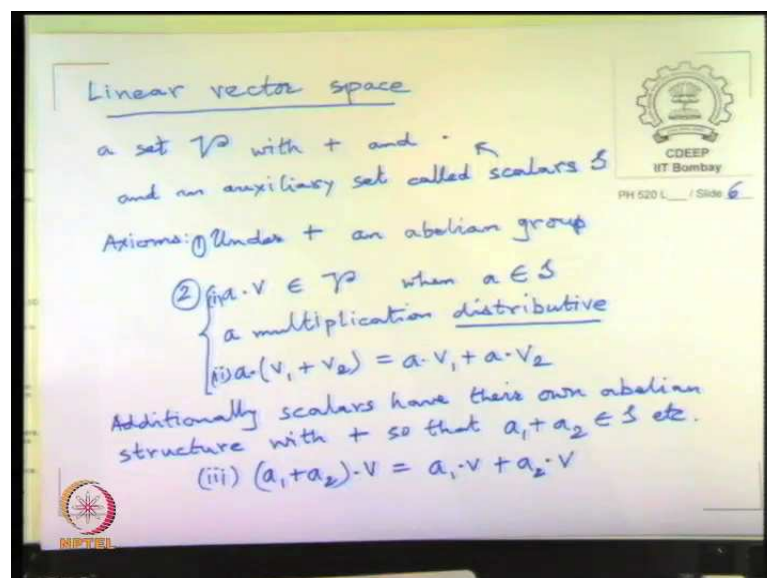 Linear vector space
a set V with + and ·
and an auxiliary set called scalars S
Axioms: ① Under + an abelian group
② (i) a·v ∈ V when a ∈ S
a multiplication distributive
(ii) a·(v₁ + v₂) = a·v₁ + a·v₂
Additionally scalars have their own abelian
structure with + so that a₁ + a₂ ∈ S etc.
(iii) (a₁+a₂)·v = a₁·v + a₂·v
CDEEP
IIT Bombay
PH 520 L___ / Slide 6
NPTEL